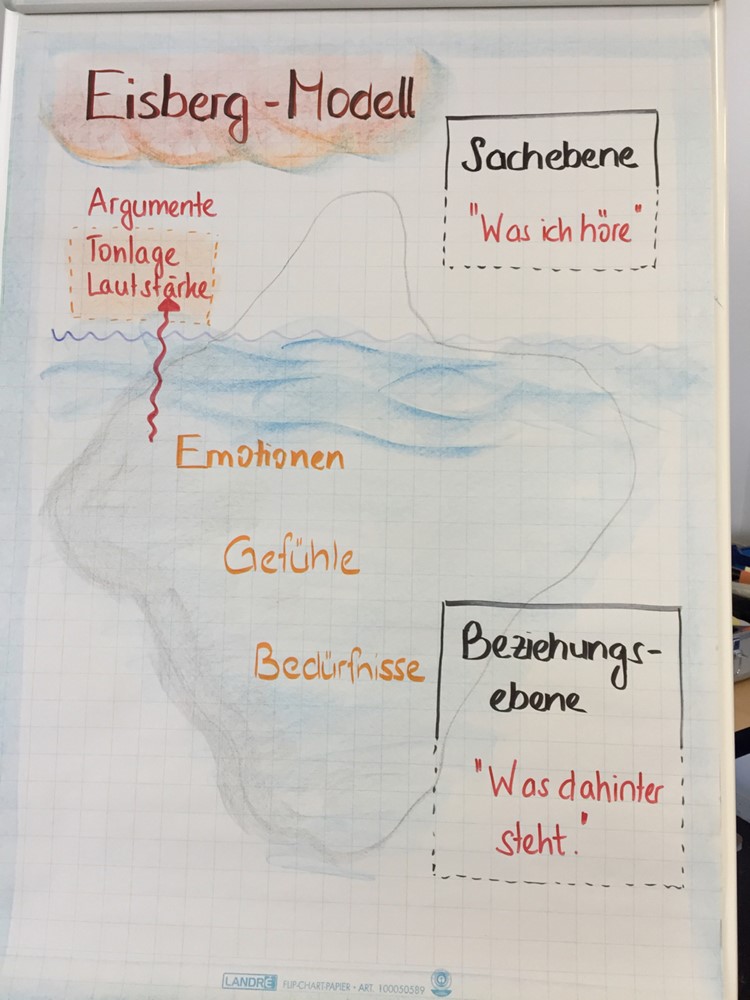 Eisberg-Modell
Sachebene
"Was ich höre"
Argumente
Tonlage
Lautstärke
Emotionen
Gefühle
Bedürfnisse
Beziehungs-
ebene
"Was dahinter
steht."
LANDRÉ FLIP-CHART-PAPIER · ART. 100050589